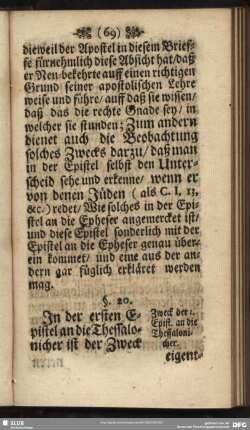 (69)
dieweil der Apostel in diesem Brief-
fe fürnehmlich diese Absicht hat/ daß
er Neu-bekehrte auff einen richtigen
Grund seiner apostolischen Lehre
weise und führe/ auff daß sie wissen/
daß das die rechte Gnade sey/ in
welcher sie stunden; Zum andern
dienet auch die Beobachtung
solches Zwecks darzu/ daß man
in der Epistel selbst den Unter-
scheid sehe und erkenne/ wenn er
von denen Jüden (als C. I. 13.
&c.) redet/ Wie solches in der Epi-
stel an die Epheser angemercket ist/
und diese Epistel sonderlich mit der
Epistel an die Epheser genau über-
ein kommet/ und eine aus der an-
dern gar füglich erkläret werden
mag.
§. 20.
In der ersten E-
pistel an die Thessalo-
nicher ist der Zweck
Zweck der 1.
Epist. an die
Thessaloni-
cher.
eigent-
SLUB
DFG